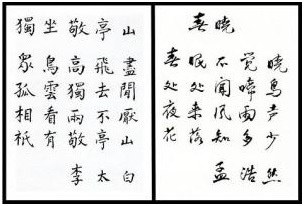 獨坐敬亭山
眾鳥高飛盡
孤雲獨去閒
相看兩不厭
祇有敬亭山
李太白
春晓
春眠不觉晓
处处闻啼鸟
夜来风雨声
花落知多少
孟浩然